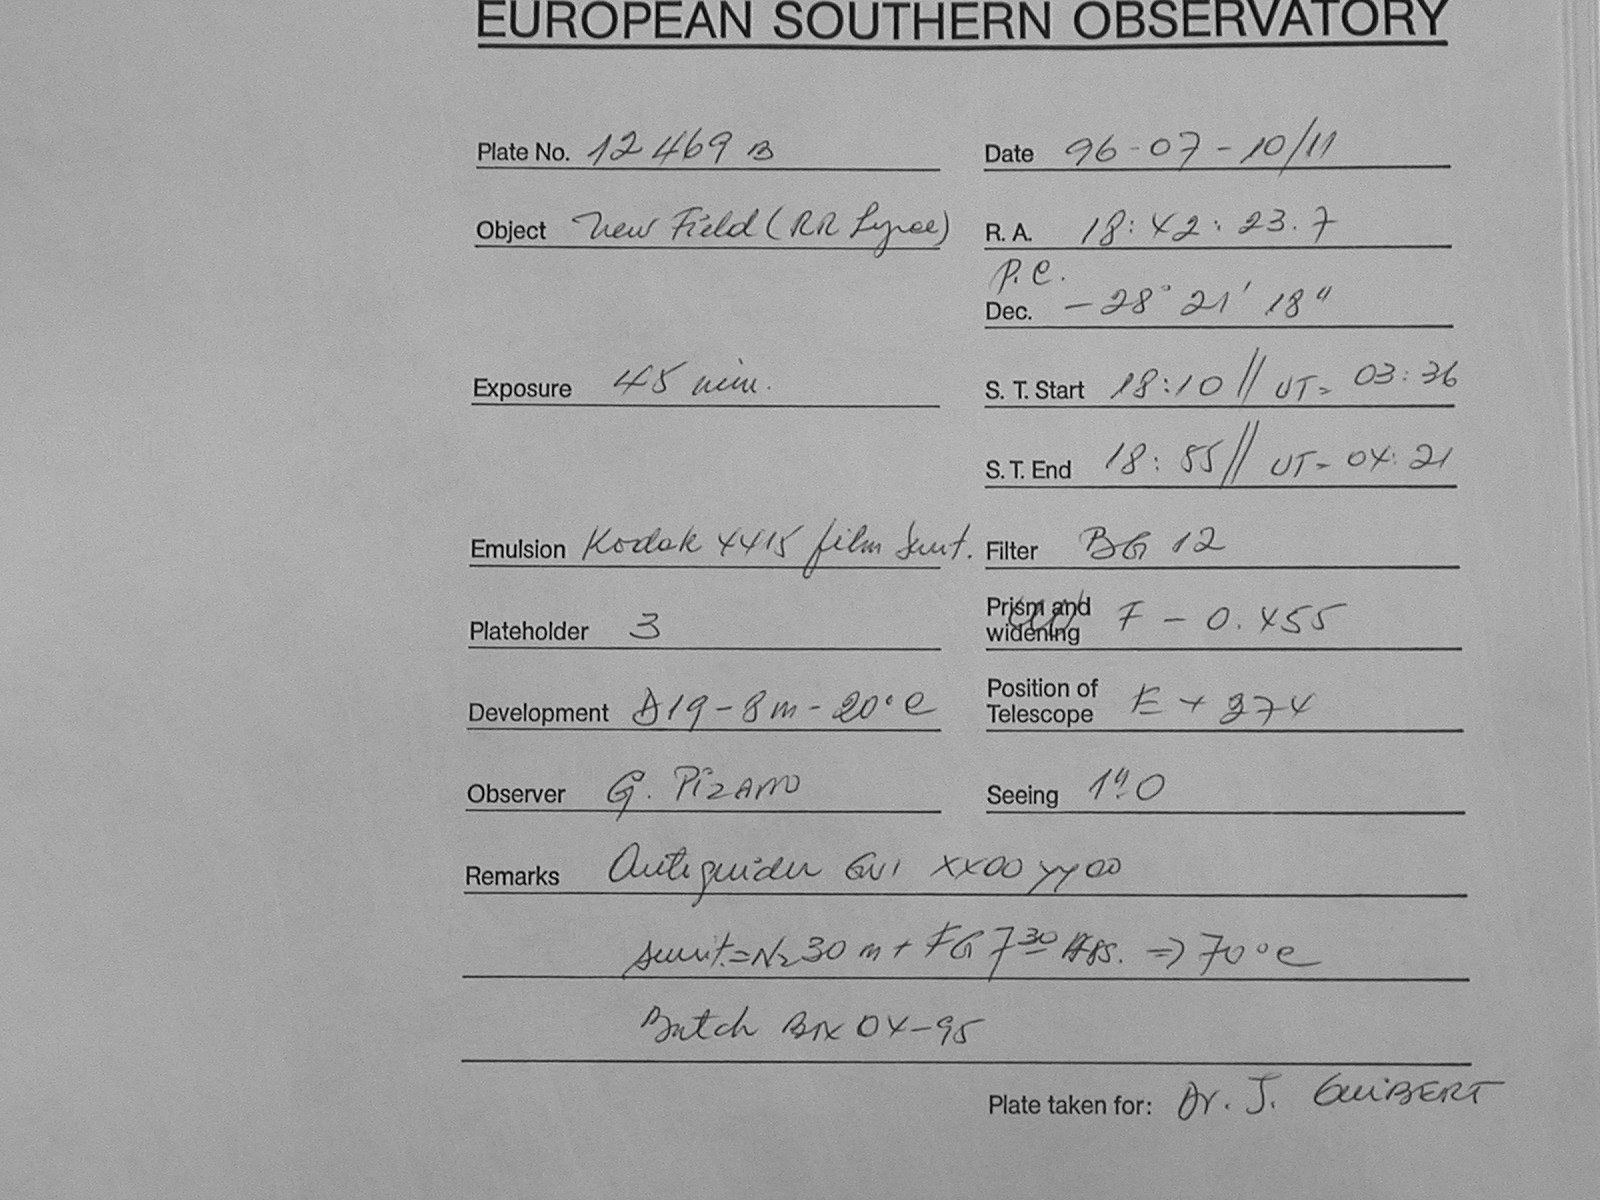 EUROPEAN SOUTHERN OBSERVATORY
Plate No. 12469 B
Date 96-07-10/11
Object New Field (RR Lyrae)
R. A. 18:42:23.7
P.C.
Dec. -28° 21' 18"
Exposure 45 min.
S. T. Start 18:10 // UT= 03:36
S. T. End 18:55 // UT= 04:21
Emulsion Kodak 4415 film
Filter BG 12
Plateholder 3
Prism and widening F - 0.455
Development D19-8m-20°C
Position of Telescope E + 374
Observer G. Pizarro
Seeing 1".0
Remarks Autoguider GV1 XX00 YY00
N2 30 m + FG 7 30 Hrs. => 70°C
Batch Box 04-95
Plate taken for: Dr. J. GUIBERT